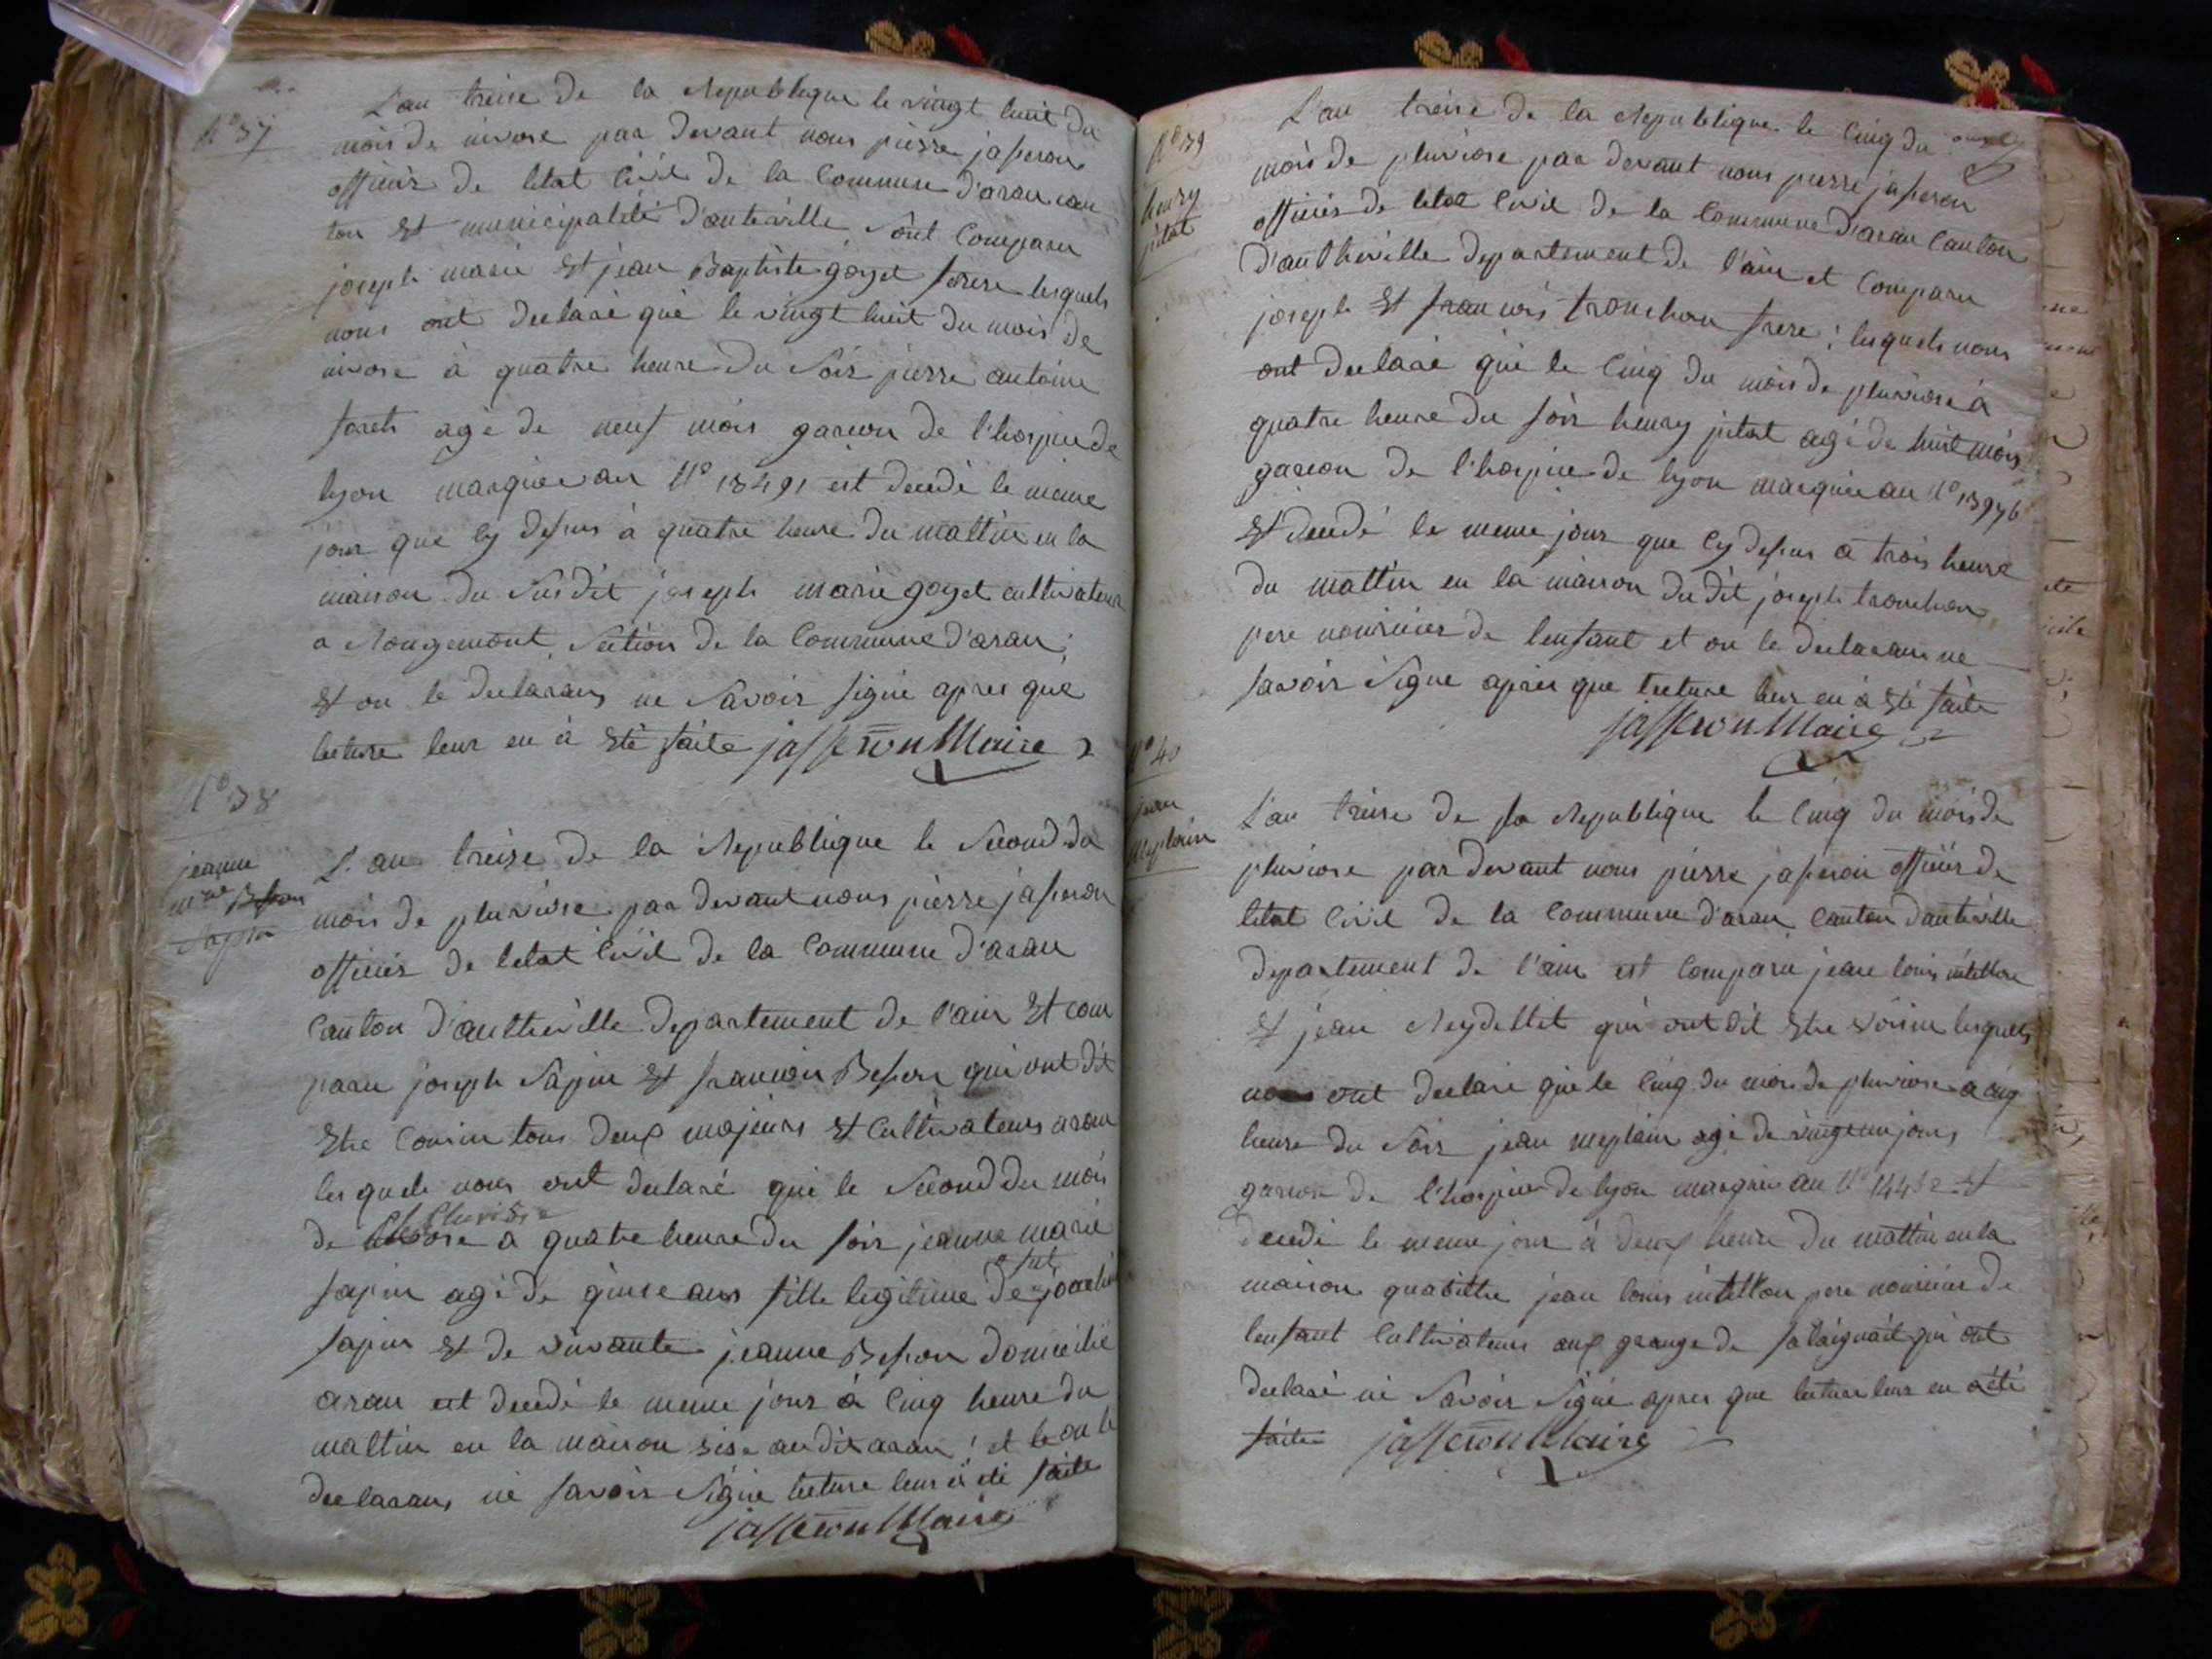 N° 37
L'an treise de la Republique le vingt huit du
mois de nivose par devant nous pierre jasseron
officiér de letat Civil de la Commune d'aran can
ton Et municipalité d'auteville Sont Comparu
joseph marie Et jean Baptiste goyet frere lesquels
nous ont declaré que le vingt huit du mois de
nivose à quatre heure du Soir pierre antoine
agé de neuf mois garcon de l'hospice de
lyon marquée au N° 13491 est decedé le meme
jour que Cy dessus à quatre heure du mattin en la
maison du Susdit joseph marie goyet cultivateur
a Rougemont Section de la Commune d'aran;
Et on le declarans ne Savoir signé apres que
lecture leur en à Eté faite jasseron Maire
N° 38
jeanne
mie Besson
Sapin
L'an treize de la Republique le Second du
mois de pluviose par devant nous pierre jasseron
officiér de letat Civil de la Commune d'aran
Canton d'autheville departement de l'ain Et com
paru joseph Sapin Et francois Besson qui ont dit
Etre Cousin tous deux majeurs Et Cultivateurs aran
lesquels nous ont declaré que le Second du mois
de Pluviose a quatre heure du soir jeanne marie
sapin agé de quinse ans fille legitime de fut joachim
sapin Et de vivante jeanne Besson domicilié
aran est decedé le meme jour à Cinq heure du
mattin en la maison sise audit aran; et on le
declarans ne savoir Signé lecture leur à eté faite
jasseron Maire
N° 39
henry
jutot
L'an treise de la Republique le Cinq du
mois de pluviose par devant nous pierre jasseron
officiés de letat Civil de la Commune d'aran Canton
d'autheville departement de l'ain et Comparu
joseph Et francois tronchon frere; lesquels nous
ont declaré que le Cinq du mois de pluviose à
quatre heure du soir henry jutot agé de huit mois
garcon de l'hospice de lyon marquée au N° 13976
Et decedé le meme jour que Cy dessus a trois heure
du mattin en la maison du dit joseph tronchon,
pere nouricier de lenfant et on le declarans ne
savoir Signe apres que lecture leur en à Eté faite
jasseron Maire
N° 40
jean
Meplain
L'an treise de la Republique le Cinq du mois de
pluviose par devant nous pierre jasseron officiér de
letat Civil de la Commune d'aran Canton dauteville
departement de l'ain est Comparu jean louis
Et jean Reydellet qui ont dit Etre voisin lesquels
nous ont declaré que le Cinq du mois de pluviose a cinq
heure du Soir jean meplain agé de vingt un jours
garcon de l'hospice de lyon marquée au N° 14452 Et
decedé le meme jour à deux heure du mattin en la
maison quabitte jean louis pere nouricier de
lenfant Cultivateurs aux grange de qui ont
declaré ne Savoir Signé apres que lecture leur en a été
faite jasseron Maire